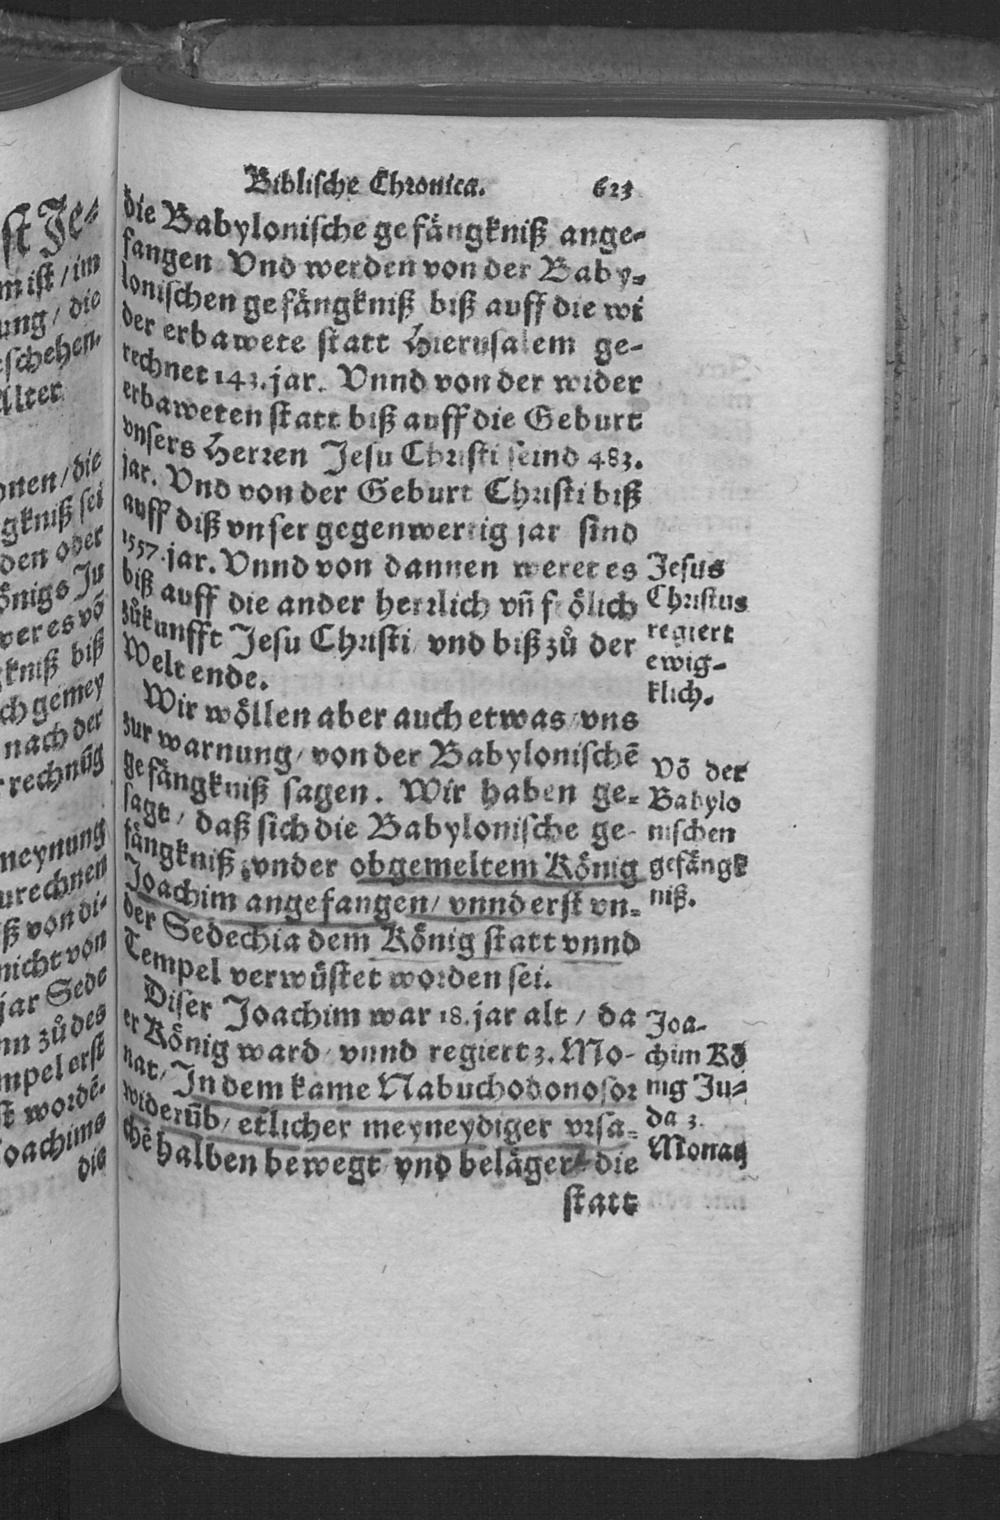 Biblische Chronica. 623
die Babylonische gefängkniß ange-
fangen Vnd werden von der Baby-
lonischen gefängkniß biß auff die wi
der erbawete statt Hierusalem ge-
rechnet 143. jar. Vnnd von der wider
erbaweten statt biß auff die Geburt
vnsers Herren Jesu Christi seind 483.
jar. Vnd von der Geburt Christi biß
auff diß vnser gegenwertig jar sind
1557. jar. Vnnd von dannen weret es
biß auff die ander herrlich vñ frölich
zůkunfft Jesu Christi vnd biß zů der
Welt ende.
Jesus
Christus
regiert
ewig-
klich.
Wir wöllen aber auch etwas vns
zur warnung/ von der Babylonischē
gefängkniß sagen. Wir haben ge-
sagt/ daß sich die Babylonische ge-
fängkniß, vnder obgemeltem König
Joachim angefangen/ vnnd erst vn-
der Sedechia dem König statt vnnd
Tempel verwüstet worden sei.
Võ der
Babylo
nischen
gefängk
niß.
Diser Joachim war 18. jar alt/ da
er König ward/ vnnd regiert 3. Mo-
nat/ In dem kame Nabuchodonosor
widerüb/ etlicher meyneydiger vrsa-
chē halben bewegt vnd belägert die
statt
Joa-
chim Kö
nig Ju-
da 3.
Monatz
st Je-
m ist/ im
ung/ die
schehen.
Alter
onen/ die
gkniß sei
den oder
önigs Ju
wer es võ
kniß biß
ch gemey
nach der
rechnũg
meynung
urechnen
ß von di-
nicht von
jar Sede
nn zů des
mpel erst
st wordē.
Joachims
die